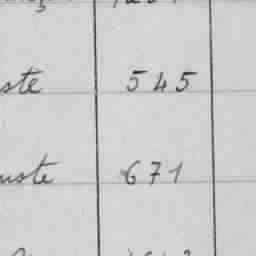 ste 545
uste 671